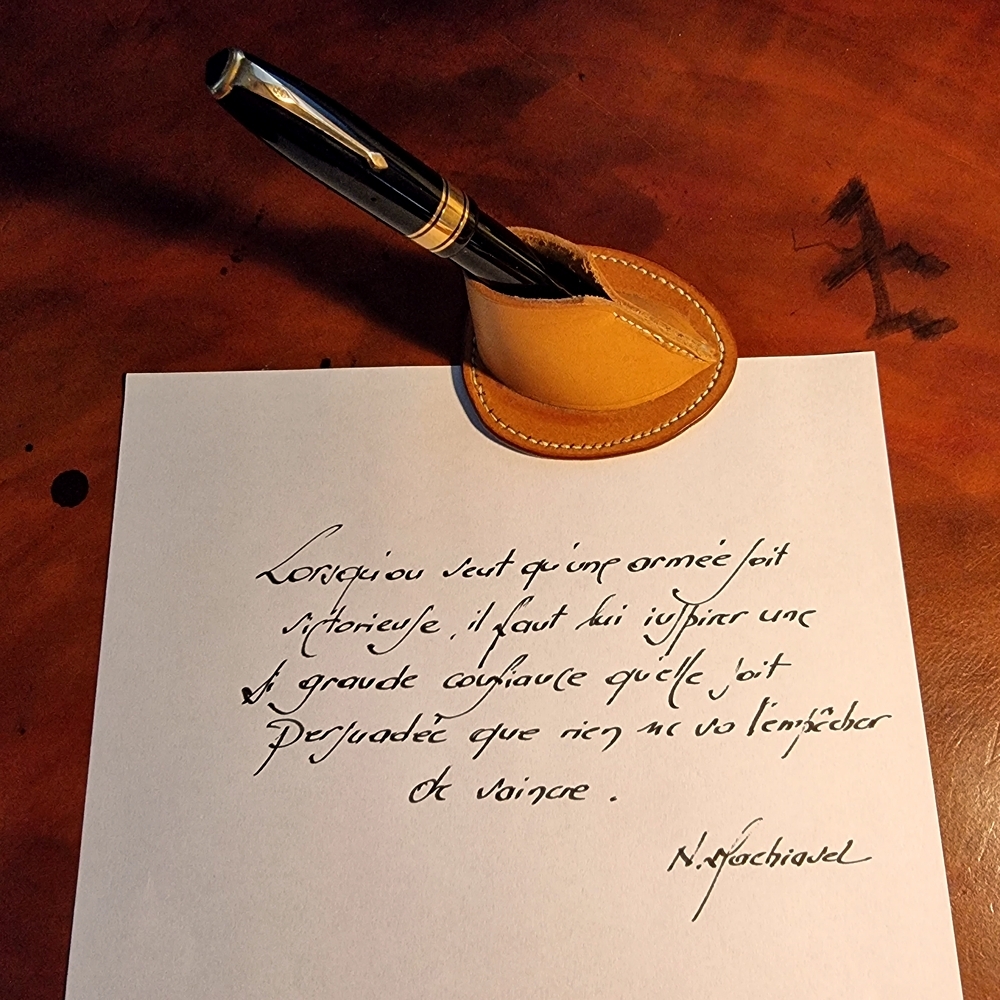 Lorsqu'on veut qu'une armée soit
victorieuse, il faut lui inspirer une
si grande confiance qu'elle soit
persuadée que rien ne va l'empêcher
de vaincre.
N. Machiavel